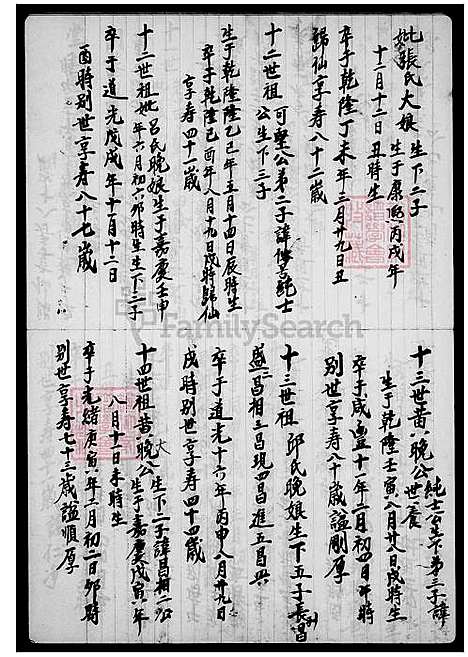 妣張氏大娘 生下二子
生于康熙丙戌年
十二月十二日丑時生
卒于乾隆丁未年三月廿九日丑
歸仙享寿八十二歲
十二世祖 可堅公第二子諱傳言純士
公生下三子
生于乾隆乙巳年五月十四日辰時生
卒于乾隆己酉年八月十九日戌時歸仙
享寿四十一歲
十二世祖妣呂氏晚娘生于嘉慶壬申
年六月初六卯時生生下二子
卒于道光戊戌年十一月十二日
酉時別世享寿八十七歲
十三世黄六晚公純士公生下第三子諱
世養
生于乾隆壬寅八月廿八日戌時生
卒于咸豊十一年二月初四日午時
別世享寿八十歲謚剛厚
十三世祖 邱氏晚娘生下五子長昌
盛二昌相三昌現四昌進五昌興
卒于道光十六年丙申八月廿九日
戌時別世享寿四十四歲
十四世祖黄晚大公生下二子諱昌相二公
生于嘉慶戊寅年
八月十一日未時生
卒于光緒庚寅年二月初二日卯時
別世享寿七十三歲謚順厚
FamilySearch